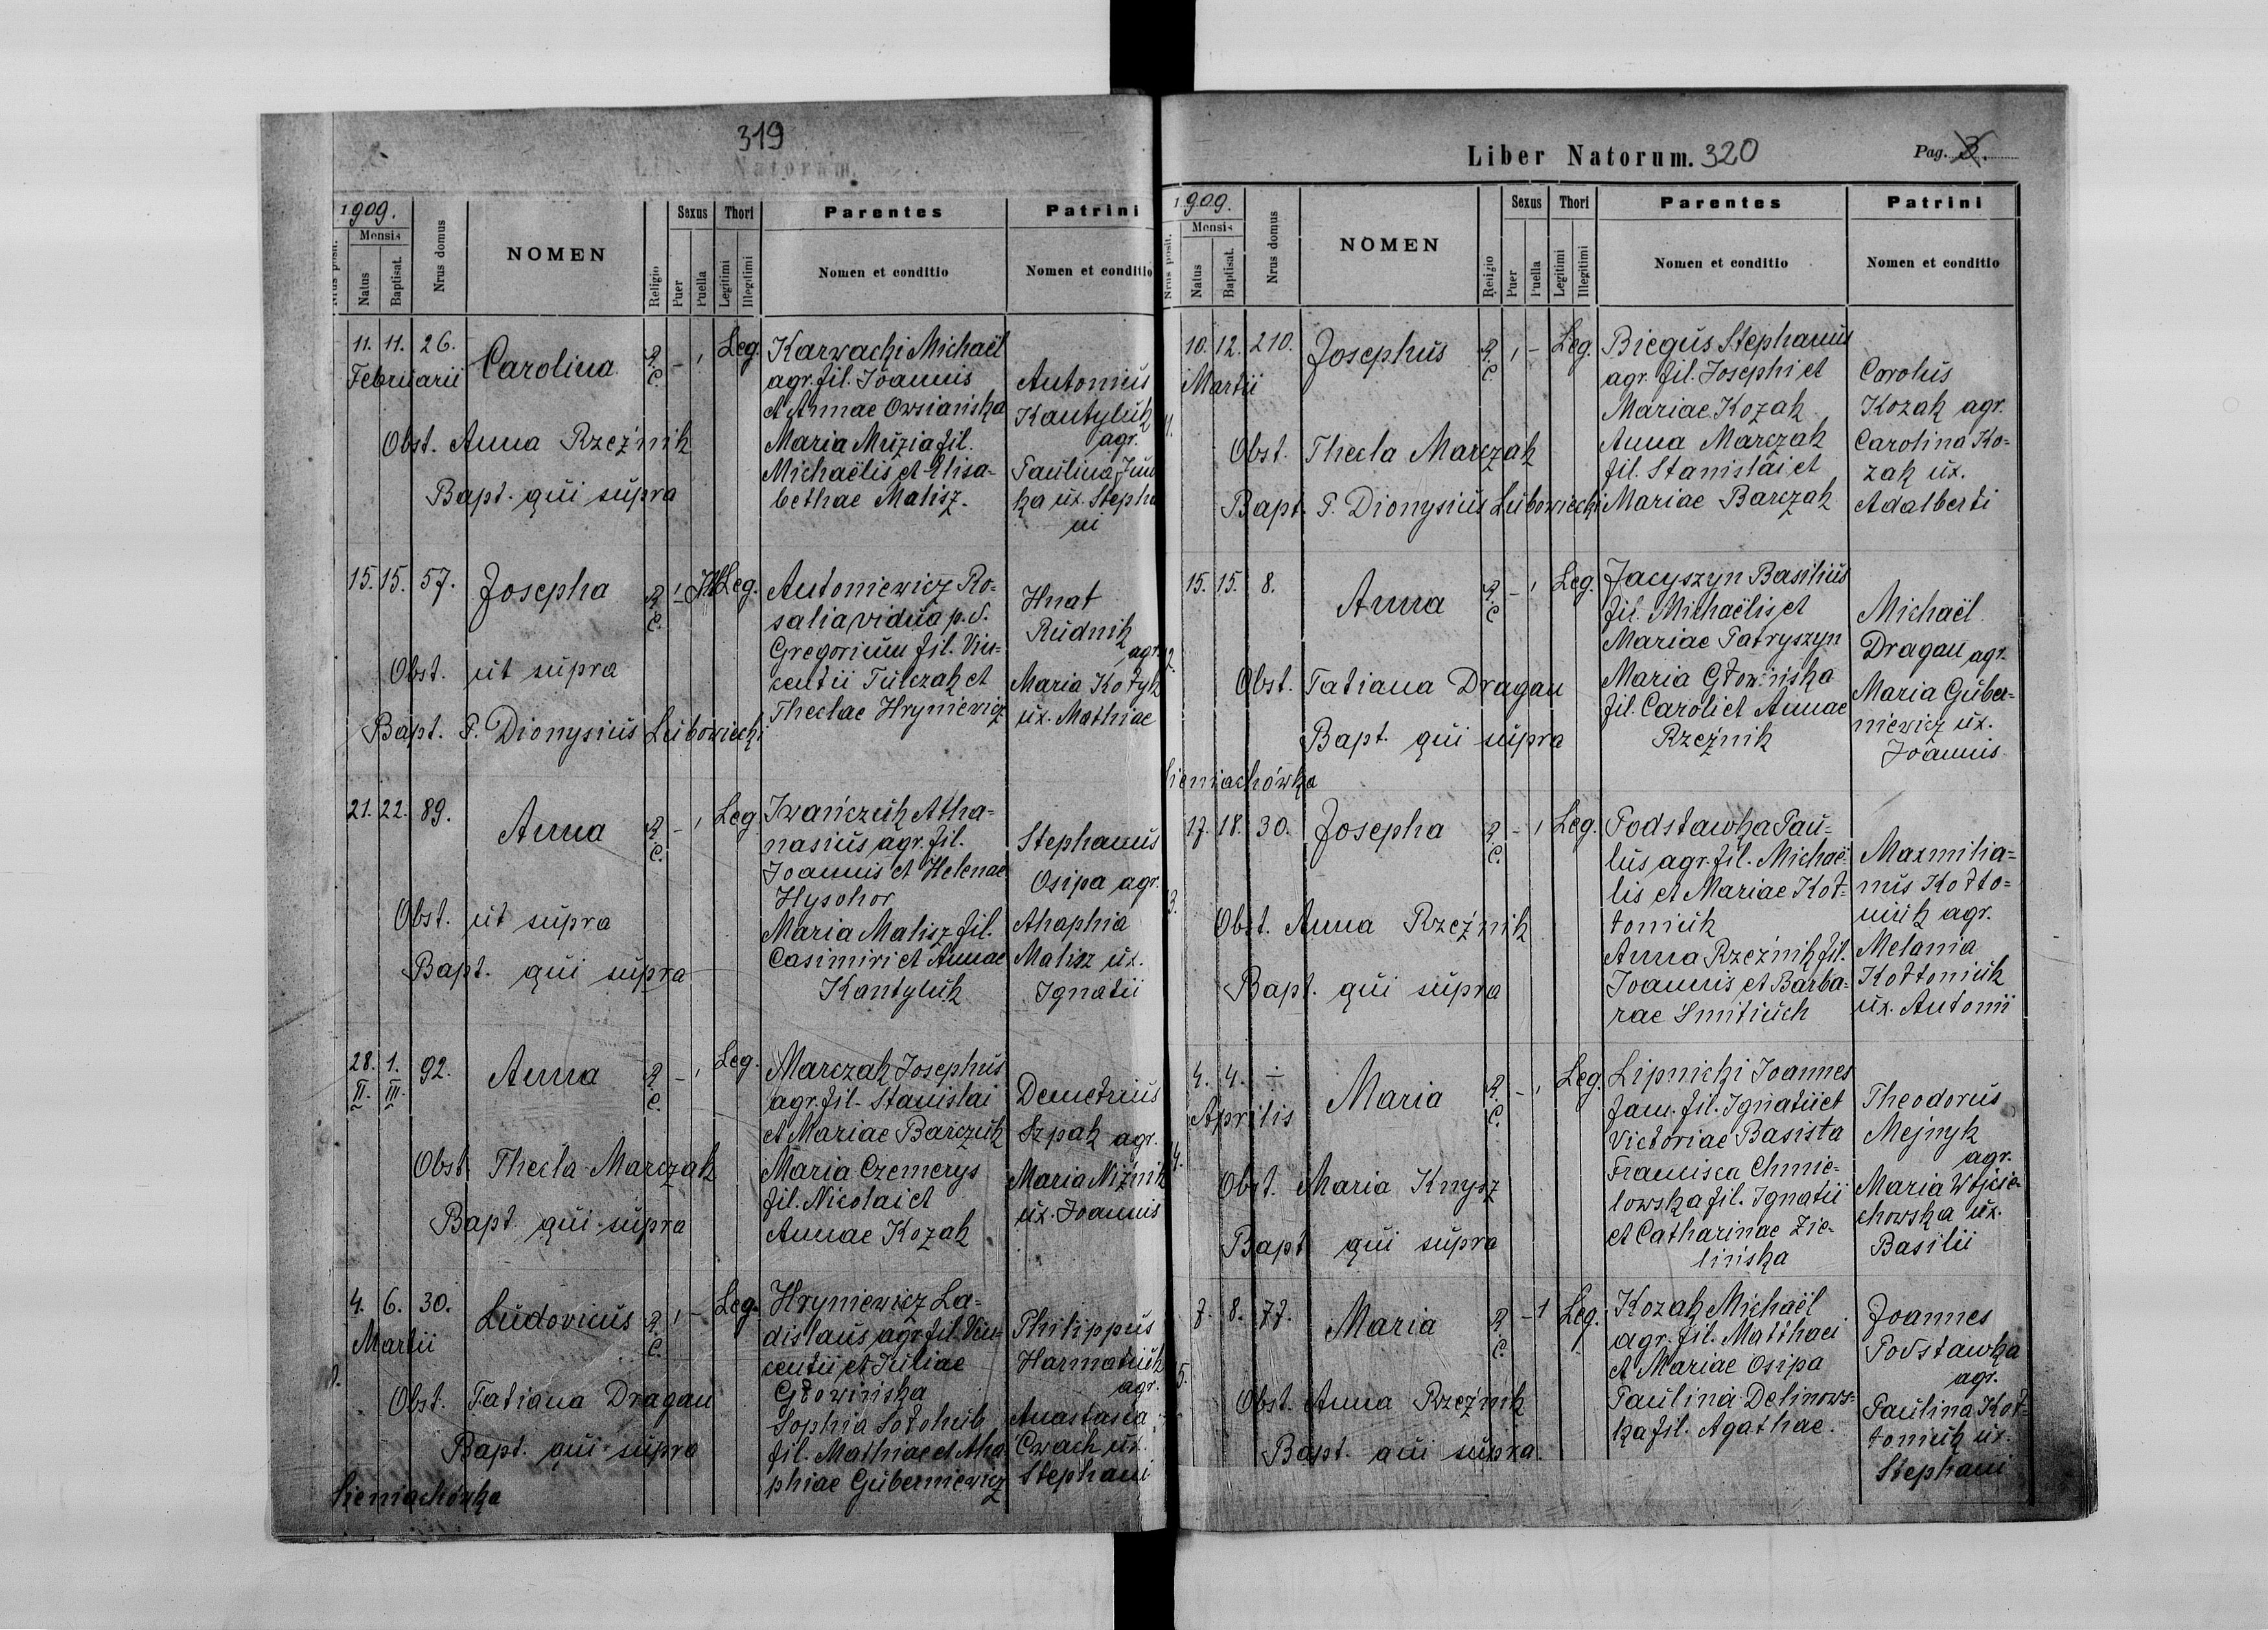 319
Liber Natorum.
1909.
Nrus posit.
Mensis
Natus
Baptisat.
Nrus domus
NOMEN
Religio
Sexus
Puer
Puella
Thori
Legitimi
Illegitimi
Parentes
Nomen et conditio
Patrini
Nomen et conditio
11. 11. 26.
Februarii
Carolina
R. C. - 1 Leg.
Karwacki Michaël
agr. fil. Joannis
et Annae Owsiańska
Maria Muzia fil.
Michaëlis et Elisa-
bethae Malisz.
Antonius
Kantyluk
agr.
Paulina
ka ux. Stepha
ni
Obst. Anna Rzeźnik
Bapt. qui supra
15. 15. 57.
Josepha
R. C. Leg.
Antoniewicz Ro-
salia vidua p. d.
Gregorium fil. Vin-
centii Tulczak et
Theclae Hryniewicz
Hnat
Rudnik
agr.
Maria Kotyk
ux. Mathiae
Obst. ut supra
Bapt. P. Dionysius Lubowiecki
21. 22. 89.
Anna
R. C. - 1 Leg.
Iwańczuk Atha-
nasius agr. fil.
Joannis et Helenae
Hysohor
Maria Malisz fil.
Casimiri et Annae
Kantyluk
Stephanus
Osipa agr.
Ahaphia
Malisz ux.
Ignatii
Obst. ut supra
Bapt. qui supra
28. 1. 92.
II. III.
Anna
R. C. - 1 Leg.
Marczak Josephus
agr. fil. Stanislai
et Mariae Barczuk
Maria Czemerys
fil. Nicolai et
Annae Kozak
Demetrius
Szpak agr.
Maria Niżnik
ux. Joannis
Obst. Thecla Marczak
Bapt. qui supra
4. 6. 30.
Martii
Ludovicus
R. C. 1 - Leg.
Hryniewicz La-
dislaus agr. fil. Vin-
centii et Juliae
Głowińska
Sophia Sołohub
fil. Mathiae et Aha
phiae Guberniewicz
Philippus
Harmatiuk
agr.
Anastasia
Cwach ux.
Stephani
Obst. Tatiana Dragan
Bapt. qui supra
Sieniachówka
Liber Natorum. 320
Pag. 3.
1909.
Nrus posit.
Mensis
Natus
Baptisat.
Nrus domus
NOMEN
Religio
Sexus
Puer
Puella
Thori
Legitimi
Illegitimi
Parentes
Nomen et conditio
Patrini
Nomen et conditio
10. 12. 210.
Martii
Josephus
R. C. 1 - Leg.
Biegus Stephanus
agr. fil. Josephi et
Mariae Kozak
Anna Marczak
fil. Stanislai et
Mariae Barczak
Carolus
Kozak agr.
Carolina Ko-
zak ux.
Adalberti
Obst. Thecla Marczak
Bapt. P. Dionysius Lubowiecki
15. 15. 8.
Anna
R. C. - 1 Leg.
Jacyszyn Basilius
fil. Michaëlis et
Mariae Patryszyn
Maria Głowińska
fil. Caroli et Annae
Rzeźnik
Michaël
Dragan agr.
Maria Guber-
niewicz ux.
Joannis
Obst. Tatiana Dragan
Bapt. qui supra
Sieniachówka
17. 18. 30.
Josepha
R. C. - 1 Leg.
Podstawka Pau-
lus agr. fil. Michaë-
lis et Mariae Koł-
toniuk
Anna Rzeźnik fil.
Joannis et Barba-
rae Smitiuch
Maxmilia-
nus Kołto-
niuk agr.
Melania
Kołtoniuk
ux. Antonii
Obst. Anna Rzeźnik
Bapt. qui supra
4. 4. ÷
Aprilis
Maria
R. C. - 1 Leg.
Lipnicki Joannes
fam. fil. Ignatii et
Victoriae Basista
Francisca Chmie-
lowska fil. Ignatii
et Catharinae Zie-
lińska
Theodorus
Mejnyk
agr.
Maria Wojcie-
chowska ux.
Basilii
Obst. Maria Knysz
Bapt. qui supra
7. 8. 77.
Maria
R. C. - 1 Leg.
Kozak Michaël
agr. fil. Matthaei
et Mariae Osipa
Paulina Delinows-
ka fil. Agathae.
Joannes
Podstawka
agr.
Paulina Koł-
toniuk ux.
Stephani
Obst. Anna Rzeźnik
Bapt. qui supra.